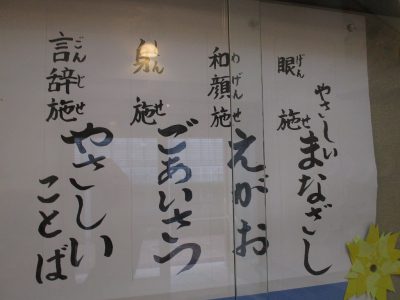 眼施 やさしいまなざし
げん
和顔施 えがお
わげんせ
身施 ごあいさつ
しんせ
言辞施 やさしいことば
ごんじせ